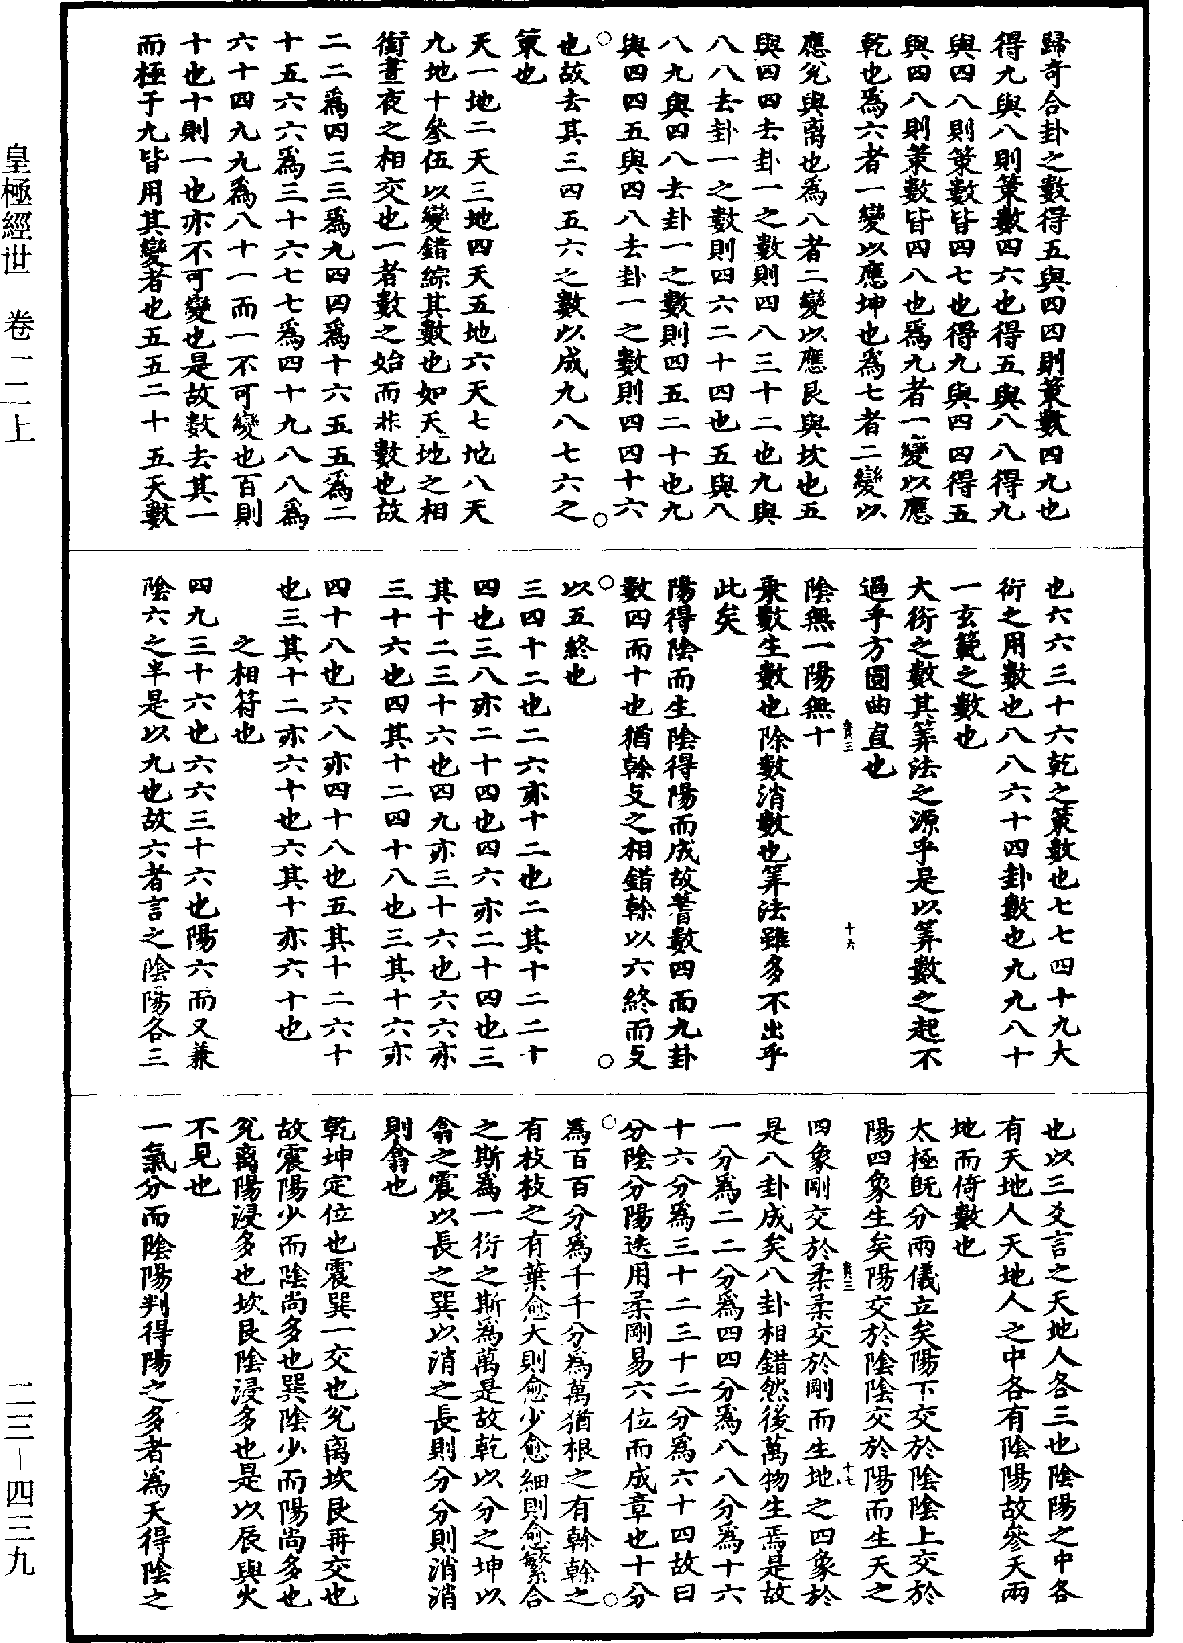 皇極經世　卷一二上
二三－四三九
歸奇合卦之數得五與四四則策數四九也
得九與八則策數四六也得五與八八得九
與四八則策數皆四七也得九與四四得五
與四八則策數皆四八也爲九者一變以應
乾也爲六者一變以應坤也爲七者二變以
應兌與离也爲八者二變以應艮與坎也五
與四四去卦一之數則四八三十二也九與
八八去卦一之數則四六二十四也五與八
八九與四八去卦一之數則四五二十也九
與四四五與四八去卦一之數則四四十六
也故去其三四五六之數以成九八七六之
策也
天一地二天三地四天五地六天七地八天
九地十參伍以變錯綜其數也如天地之相
銜晝夜之相交也一者數之始而非數也故
二二爲四三三爲九四四爲十六五五爲二
十五六六爲三十六七七爲四十九八八爲
六十四九九爲八十一而一不可變也百則
十也十則一也亦不可變也是故數去其一
而極于九皆用其變者也五五二十五天數
也六六三十六乾之策數也七七四十九大
衍之用數也八八六十四卦數也九九八十
一玄範之數也
大衍之數其筭法之源乎是以筭數之起不
過乎方圓曲直也
陰無一陽無十
乘數生數也除數消數也筭法雖多不出乎
此矣
陽得陰而生陰得陽而成故蓍數四而九卦
數四而十也猶幹支之相錯幹以六終而支
以五終也
三四十二也二六亦十二也二其十二二十
四也三八亦二十四也四六亦二十四也三
其十二三十六也四九亦三十六也六六亦
三十六也四其十二四十八也三其十六亦
四十八也六八亦四十八也五其十二六十
也三其十二亦六十也六其十亦六十也
之相符也
四九三十六也六六三十六也陽六而又兼
陰六之半是以九也故六者言之陰陽各三
也以三爻言之天地人各三也陰陽之中各
有天地人天地人之中各有陰陽故參天兩
地而倚數也
太極既分兩儀立矣陽下交於陰陰上交於
陽四象生矣陽交於陰陰交於陽而生天之
四象剛交於柔柔交於剛而生地之四象於
是八卦成矣八卦相錯然後萬物生焉是故
一分爲二二分爲四四分爲八八分爲十六
十六分爲三十二三十二分爲六十四故曰
分陰分陽迭用柔剛易六位而成章也十分
爲百百分爲千千分爲萬猶根之有幹幹之
有枝枝之有葉愈大則愈少愈細則愈繁合
之斯爲一衍之斯爲萬是故乾以分之坤以
翕之震以長之巽以消之長則分分則消消
則翕也
乾坤定位也震巽一交也兌离坎艮再交也
故震陽少而陰尚多也巽陰少而陽尚多也
兌离陽浸多也坎艮陰浸多也是以辰與火
不見也
一氣分而陰陽判得陽之多者爲天得陰之